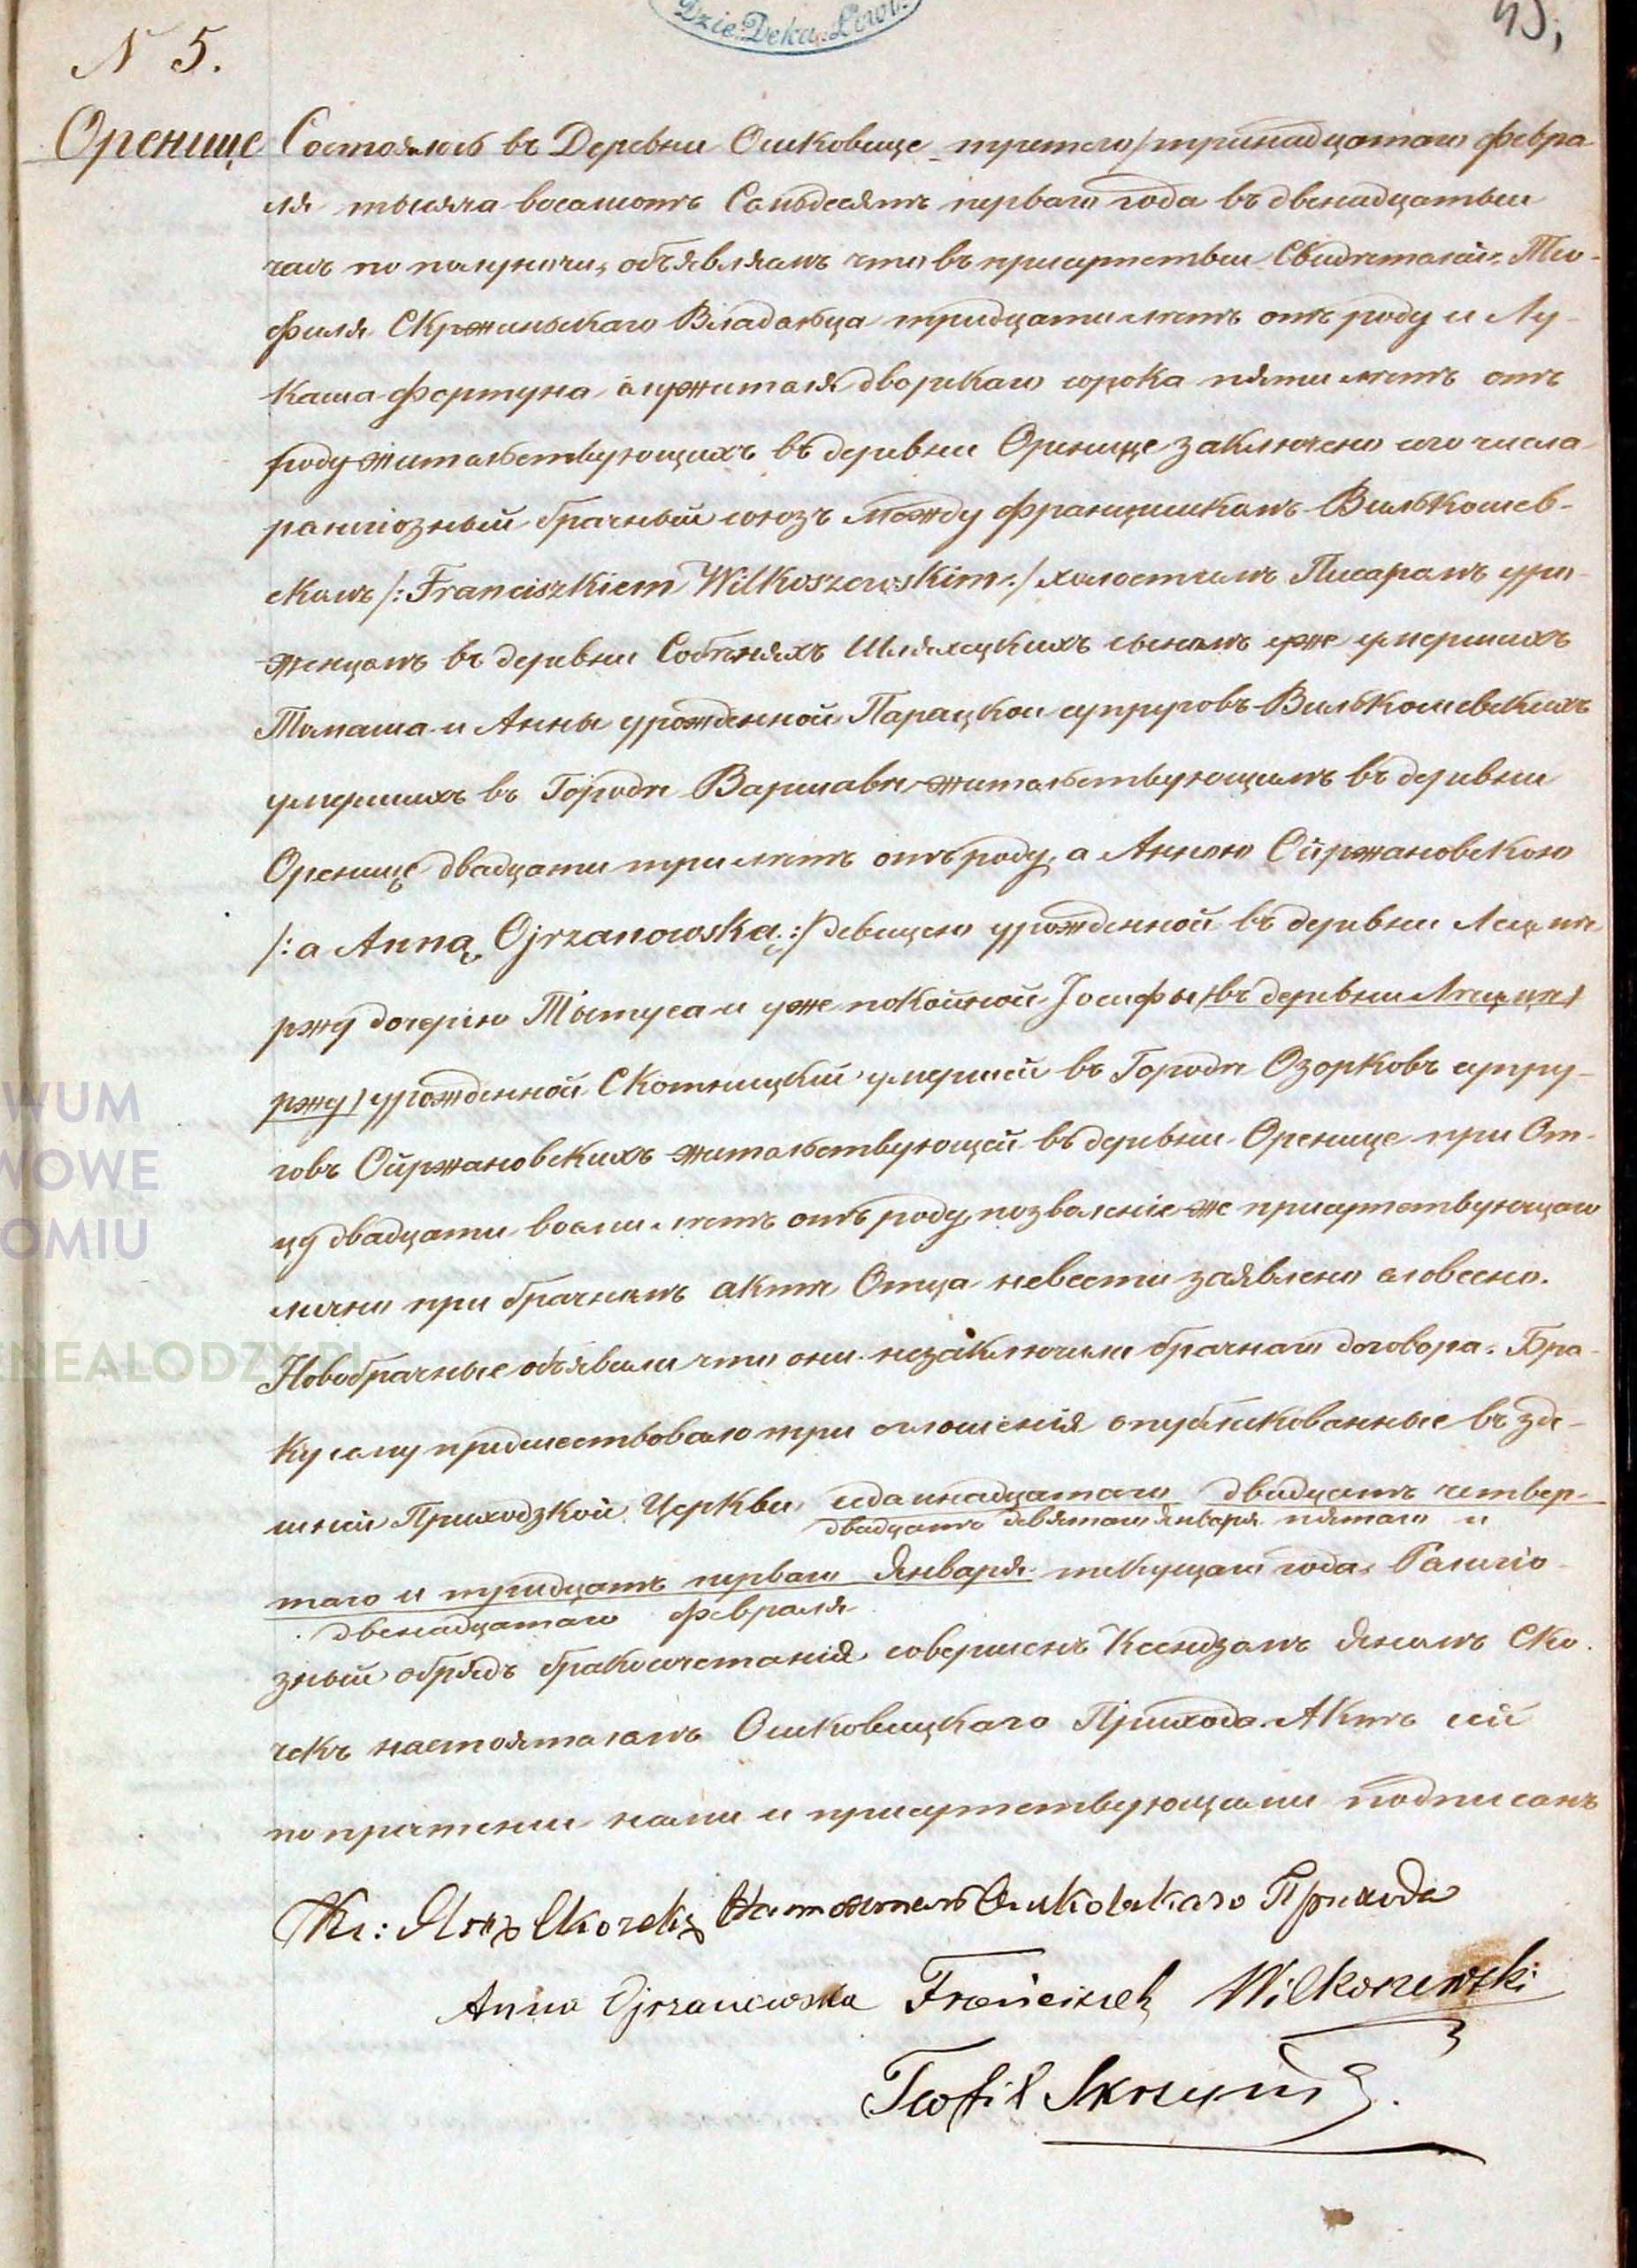 Dzie. Deka. Łowi.
45,
N 5.
Оренице
Состоялось въ Деревни Ошковице третего/тринадцатаго Февра-
ля тысяча восемсотъ Семьдесятъ перваго года въ двенадцатым
часъ по полуночи, объявляемъ что въ присутствии Свидетелей: Тео-
филя Скржиньскаго Владельца тридцати летъ отъ роду и Лу-
каша Фортуна служителя дворскаго сорока пяти летъ отъ
роду жительствующихъ въ деревни Оренице заключено сего числа
религiозный брачный союзъ между Францишкемъ Вилькошев-
скимъ /: Franciszkiem Wilkoszewskim :/ холостымъ Писаремъ уро-
женцемъ въ деревни Собеняхъ Шляхецкихъ сыномъ уже умершихъ
Томаша и Анны урожденной Парацкой супруговъ Вилькошевскихъ
умершихъ въ Городе Варшаве жительствующимъ въ деревни
Оренице двадцати три летъ отъ роду, а Анною Ойржановскою
/: a Anną Ojrzanowską :/ девицею урожденной въ деревни
ржу дочерiю Тытуса и уже покойной Iосифы /въ деревни
ржу/ урожденной Скотницкий умершей въ Городе Озорковъ супру-
говъ Ойржановскихъ жительствующей въ деревни Оренице при От-
цу двадцати восми летъ отъ роду, позволенiе же присутствующаго
лично при брачнымъ акте Отца невести заявлено словесно.
Новобрачные объявили что они незаключили брачнаго договора. Бра-
ку сему предшествовало три оглошенiя опубликованные въ зде-
шней Приходзкой Церкви, седминадцатаго двадцать четвер-
двадцать девятаго Января пятаго и
таго и тридцать перваго Января текущаго года. Религiо-
двенадцатаго Февраля
зный обрядъ бракосочетанiя совершенъ Ксендземъ Яномъ Ско-
чекъ настоятелемъ Ошковицкаго Прихода. Актъ сей
по прочтении нами и присутствующими подписанъ
Кс: Янъ Скочекъ Настоятель Ошковскаго Прихода
Anna Ojrzanowska Franciszek Wilkoszewski
Teofil
WUM
WOWE
OMIU
ENEALODZY.PL